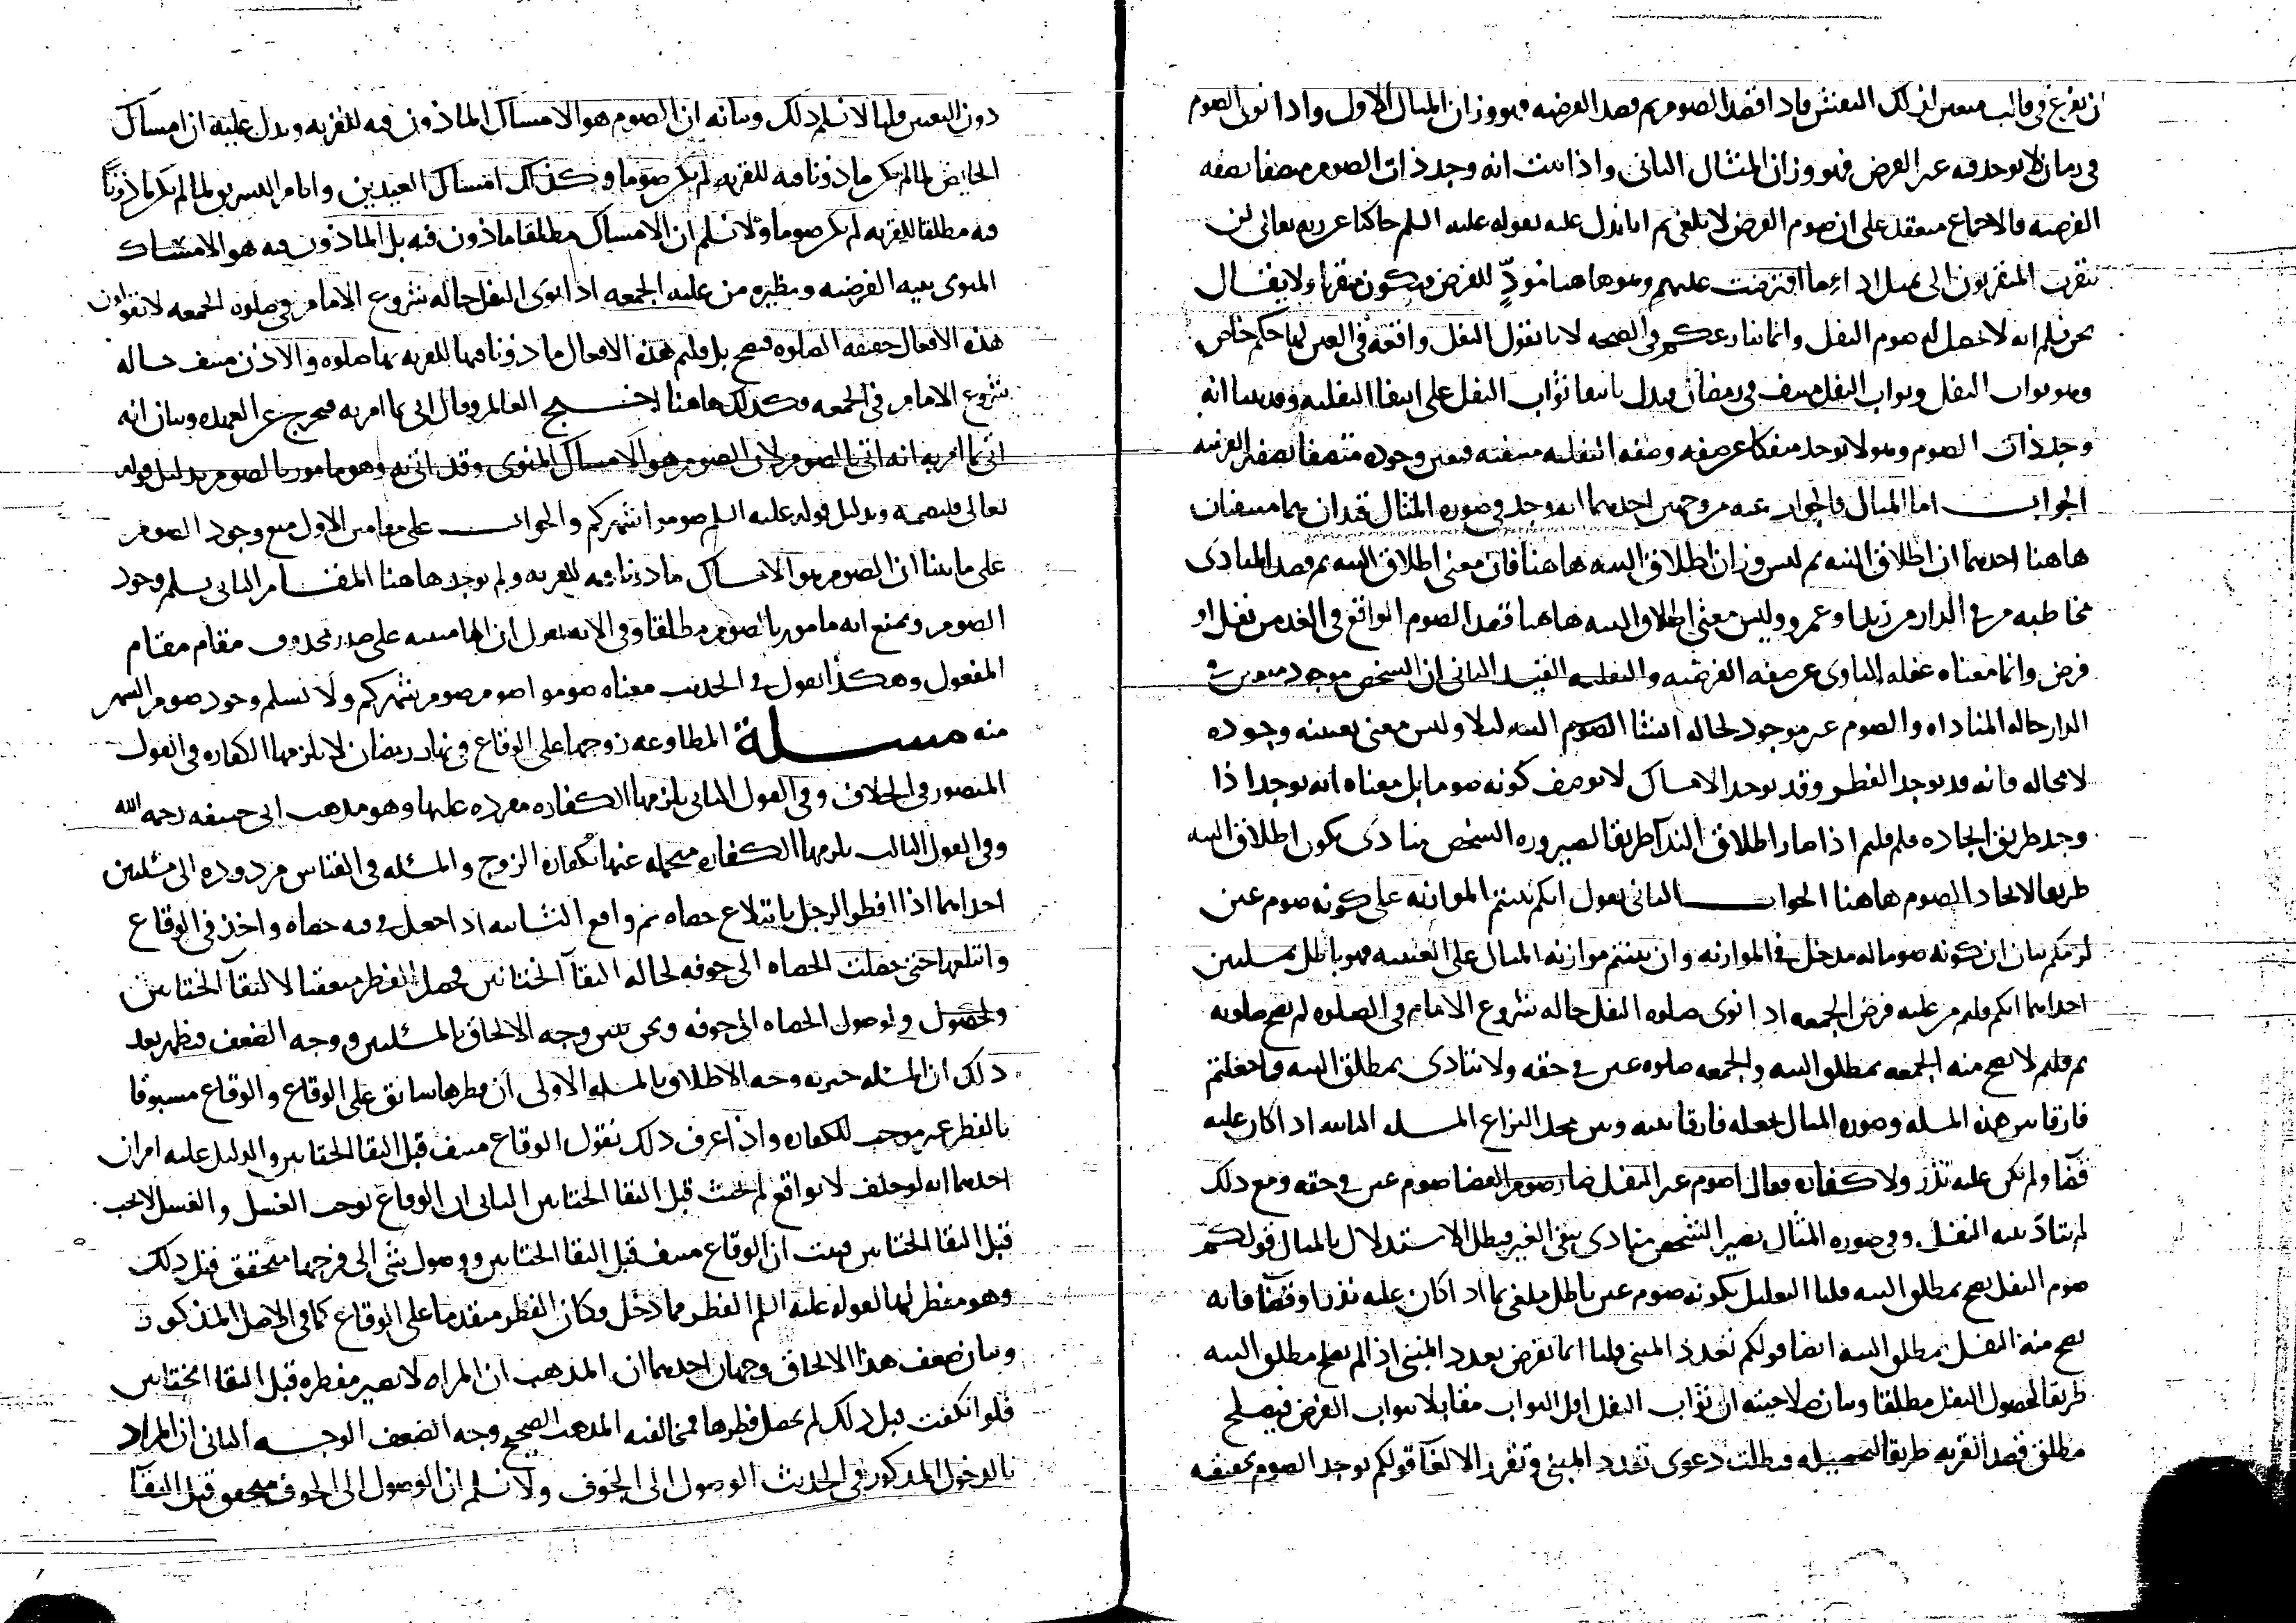 ان يفرغ في قالب متعين لذلك النقش فاذا قصد الصوم ثم قصد الفرضيه فهو وزان المثال الاول واذا نوى الصوم
في زمان لا يوجد فيه غير الفرض فهو وزان المثال الثاني واذا ثبت انه وجد ذات الصوم متصفا بصفه
الفرضيه فالاجماع منعقد على ان صوم الفرض لا يلغى ثم انا ندل عليه بقوله عليه السلم حاكيا عن ربه تعالى لن
يتقرب المتقربون الى بمثل اداء ما افترضت عليهم وهو هاهنا مؤدٍّ للفرض فيكون متقربا ولا يقال
نحن نسلم انه لا يحصل له صوم النفل وانما ننازعكم في الصحه لانا نقول النفل واقعه في العين لها حكم خاص
وهو ثواب النفل وثواب النفل منتف في رمضان فيدل بانتفا ثواب النفل على انتفا النفليه وقد بينا انه
وجد ذات الصوم وهو لا يوجد منفكا عن صفه وصفه النفليه منتفيه فتعين وجوده متصفا بصفه الفرضيه
الجواب اما المثال فالجواب عنه من وجهين احدهما انه وجد في صوره المثال قيدان هما منتفيان
هاهنا احدهما ان اطلاق النيه ثم ليس وزان اطلاق النيه هاهنا فان معنى اطلاق النيه ثم قصد المنادى
مخاطبه من في الدار من زيد او عمرو وليس معنى اطلاق النيه هاهنا قصد الصوم الواقع في الغد من نفل او
فرض وانما معناه غفله الناوى عن صفه الفرضيه والنفليه القيد الثاني ان الشخص موجود متعين في
الدار حاله المناداه والصوم غير موجود لحاله انشا الصوم النيه ليلا وليس معنى تعينه وجوده
لا محاله فانه قد يوجد الفطر وقد يوجد الامساك لا بوصف كونه صوما بل معناه انه يوجد اذا
وجد طريق ايجاده فلم قلتم اذا صار اطلاق الندآ طريقا لصيروره الشخص منادى يكون اطلاق النيه
طريقا لايجاد الصوم هاهنا الجواب الثاني نقول انكم بنيتم الموازنه على كونه صوم عين
لزمكم بيان ان كونه صوما له مدخل في الموازنه وان بنيتم موازنه المثال على العينيه فهو باطل بمسلتين
احداهما انكم قلتم من عليه فرض الجمعه اذا نوى صلوه النفل حاله شروع الامام في الصلوه لم تصح صلوته
ثم قلتم لا تصح منه الجمعه بمطلق النيه والجمعه صلوه عين في حقه ولا تتادى بمطلق النيه فما جعلتم
فارقا بين هذه المسله وصوره المثال نجعله فارقا بينه وبين محل النزاع المسله الثانيه اذا كان عليه
قضآ ولم يكن عليه نذر ولا كفاره فقال اصوم غير النفل صار صوم القضا صوم عين في حقه ومع ذلك
لم يتادّ بنيه النفل وفي صوره المثال يصير الشخص منادى بنفى الغير فبطل الاستدلال بالمثال قولكم
صوم النفل يصح بمطلق النيه قلنا التعليل بكونه صوم عين باطل ملغى بما اذا كان عليه نذر او قضآ فانه
يصح منه النفل بمطلق النيه ايضا قولكم تعدد المبنى قلنا انما نفرض بعدد المبنى اذ الم يصلح مطلق النيه
طريقا لحصول النفل مطلقا وبيان صلاحيته ان ثواب النفل اقل الثواب مقابلا بثواب الفرض فيصلح
مطلق قصد القربه طريقا لتحصيله فبطلت دعوى تعدد المبنى وتقرر الالغآ قولكم يوجد الصوم بحقيقه
دون التعيين قلنا لا نسلم ذلك وبيانه ان الصوم هو الامساك الماذون فيه للقربه ويدل عليه ان امساك
الحايض لما لم يكن ماذونا فيه للقربه لم يكن صوما وكذلك امساك العيدين وايام التشريق لما لم يكن ماذونًا
فيه مطلقا للقربه لم يكن صوما ولا نسلم ان الامساك مطلقا ماذون فيه بل الماذون فيه هو الامساك
المنوى بنيه الفرضيه ونظيره من عليه الجمعه اذا نوى النفل حاله شروع الامام في صلوه الجمعه لا نقول ان
هذه الافعال حقيقه الصلوه فتصح بل قلتم هذه الافعال ماذونا فيها للقربه بما صلوه والاذن منتف حاله
شروع الامام في الجمعه فكذلك هاهنا احتج العالم وقال اتى بما امر به فيخرج عن العهده وبيان انه
اتى بما امر به انه اتى بالصوم لان الصوم هو الامساك المنوى وقد اتى به وهو مامور بالصوم بدليل قوله
تعالى فليصمه وبدليل قوله عليه السلم صوموا شهركم والجواب على مقامين الاول منع وجود الصوم
على ما بينا ان الصوم هو الامساك ماذونا فيه للقربه ولم يوجد هاهنا المقام الثاني نسلم وجود
الصوم ونمنع انه مامور بالصوم مطلقا وفي الايه نقول ان الها مبنيه على صدر محذوف مقام مقام
المفعول وهكذا نقول في الحديث معناه صوموا صوم شهركم ولا نسلم وجود صوم الشهر
منه مسلة المطاوعه زوجها على الوقاع في نهار رمضان لا يلزمها الكفاره في القول
المنصور في الخلاف وفي القول الثاني يلزمها الكفاره مفرده عليها وهو مذهب ابى حنيفه رحمه الله
وفي القول الثالث يلزمها الكفاره متحمله عنها بكفاره الزوج والمسئله في القياس مردوده الى مسئلتين
احداهما اذا افطر الرجل بابتلاع حصاه ثم واقع الثانيه اذا جعل في فيه حصاه واخذ في الوقاع
وابتلعها حتى حصلت الحصاه الى جوفه لحاله التقآ الختانين فحصل الفطر متعقبا لالتقآ الختانين
ولحصول ولوصول الحصاه الى جوفه ونحن نبين وجه الالحاق بالمسئلتين ووجه الضعف فيظهر بعد
ذلك ان المسئله خبريه وجه الاطلاق بالمسله الاولى ان فطرها سابق على الوقاع والوقاع مسبوقا
بالفطر غير موجب للكفاره واذا عرف ذلك نقول الوقاع منتف قبل التقا الختانين والدليل عليه امران
احدهما انه لو حلف لا يواقع لم يحنث قبل التقا الختانين الثاني ان الوقاع يوجب الغسل والغسل لا يجب
قبل التقا الختانين فثبت ان الوقاع منتف قبل التقا الختانين ووصول شى الى فرجها متحقق قبل ذلك
وهو مفطر لها لقوله عليه السلم الفطر مما دخل وكان الفطر متقدما على الوقاع كما في الاصل المذكور
وبيان ضعف هذا الالحاق وجهان احدهما ان المذهب ان المراه لا تصير مفطره قبل التقا الختانين
فلو انكفت قبل ذلك لم يحصل فطرها فمخالفته المذهب الصحيح وجه الضعف الوجه الثاني ان المراد
بالدخول المذكور في الحديث الوصول الى الجوف ولا نسلم ان الوصول الى الجوف متحقق قبل التقآ